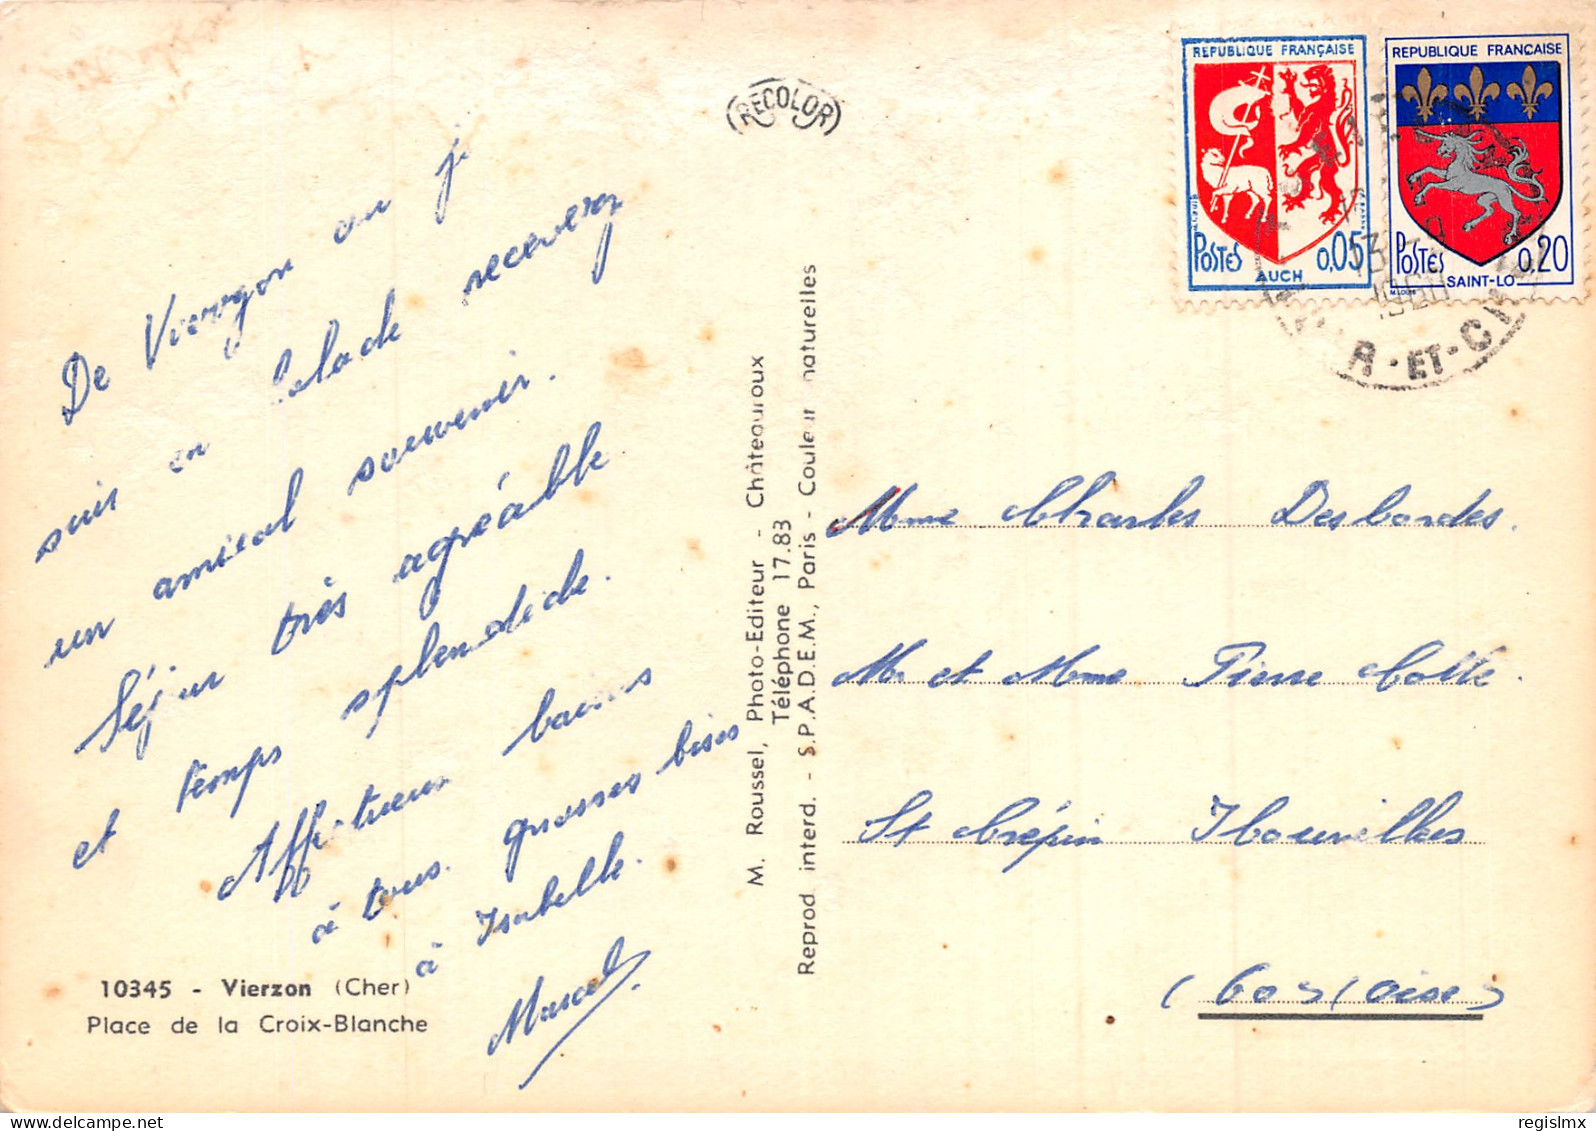 RECOLOR
REPUBLIQUE FRANÇAISE
POSTES 0,05
AUCH
REPUBLIQUE FRANÇAISE
POSTES 0,20
SAINT-LO
R-ET-C
De Vierzon ou je
suis en balade recevez
un amical souvenir.
Séjour très agréable
et temps splendide.
Affectueux baisers
à tous. grosses bises
à Isabelle.
Marcel
10345 - Vierzon (Cher)
Place de la Croix-Blanche
M. Roussel, Photo-Editeur - Châteauroux
Téléphone 17.83
Reprod. interd. - S.P.A.D.E.M., Paris - Couleur naturelles
Mme Charles Desbordes.
Mr et Mme Pierre Colle.
St Crépin Ibouvillers
(60) (oise)
delcampe.net
regislmx